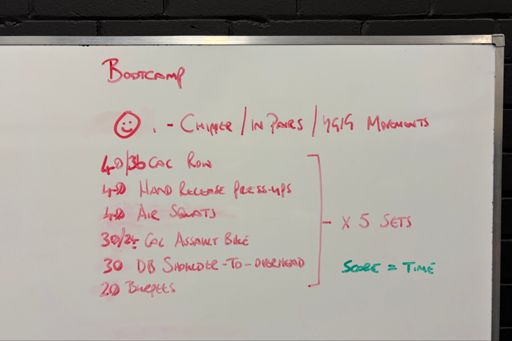 Bootcamp
. - Chipper / In Pairs / YGIG Movements
40/36 Cal Row
40 Hand Release Press-ups
40 Air Squats
30/24 Cal Assault Bike
30 DB Shoulder-to-overhead
20 Burpees
x 5 Sets
Score = Time